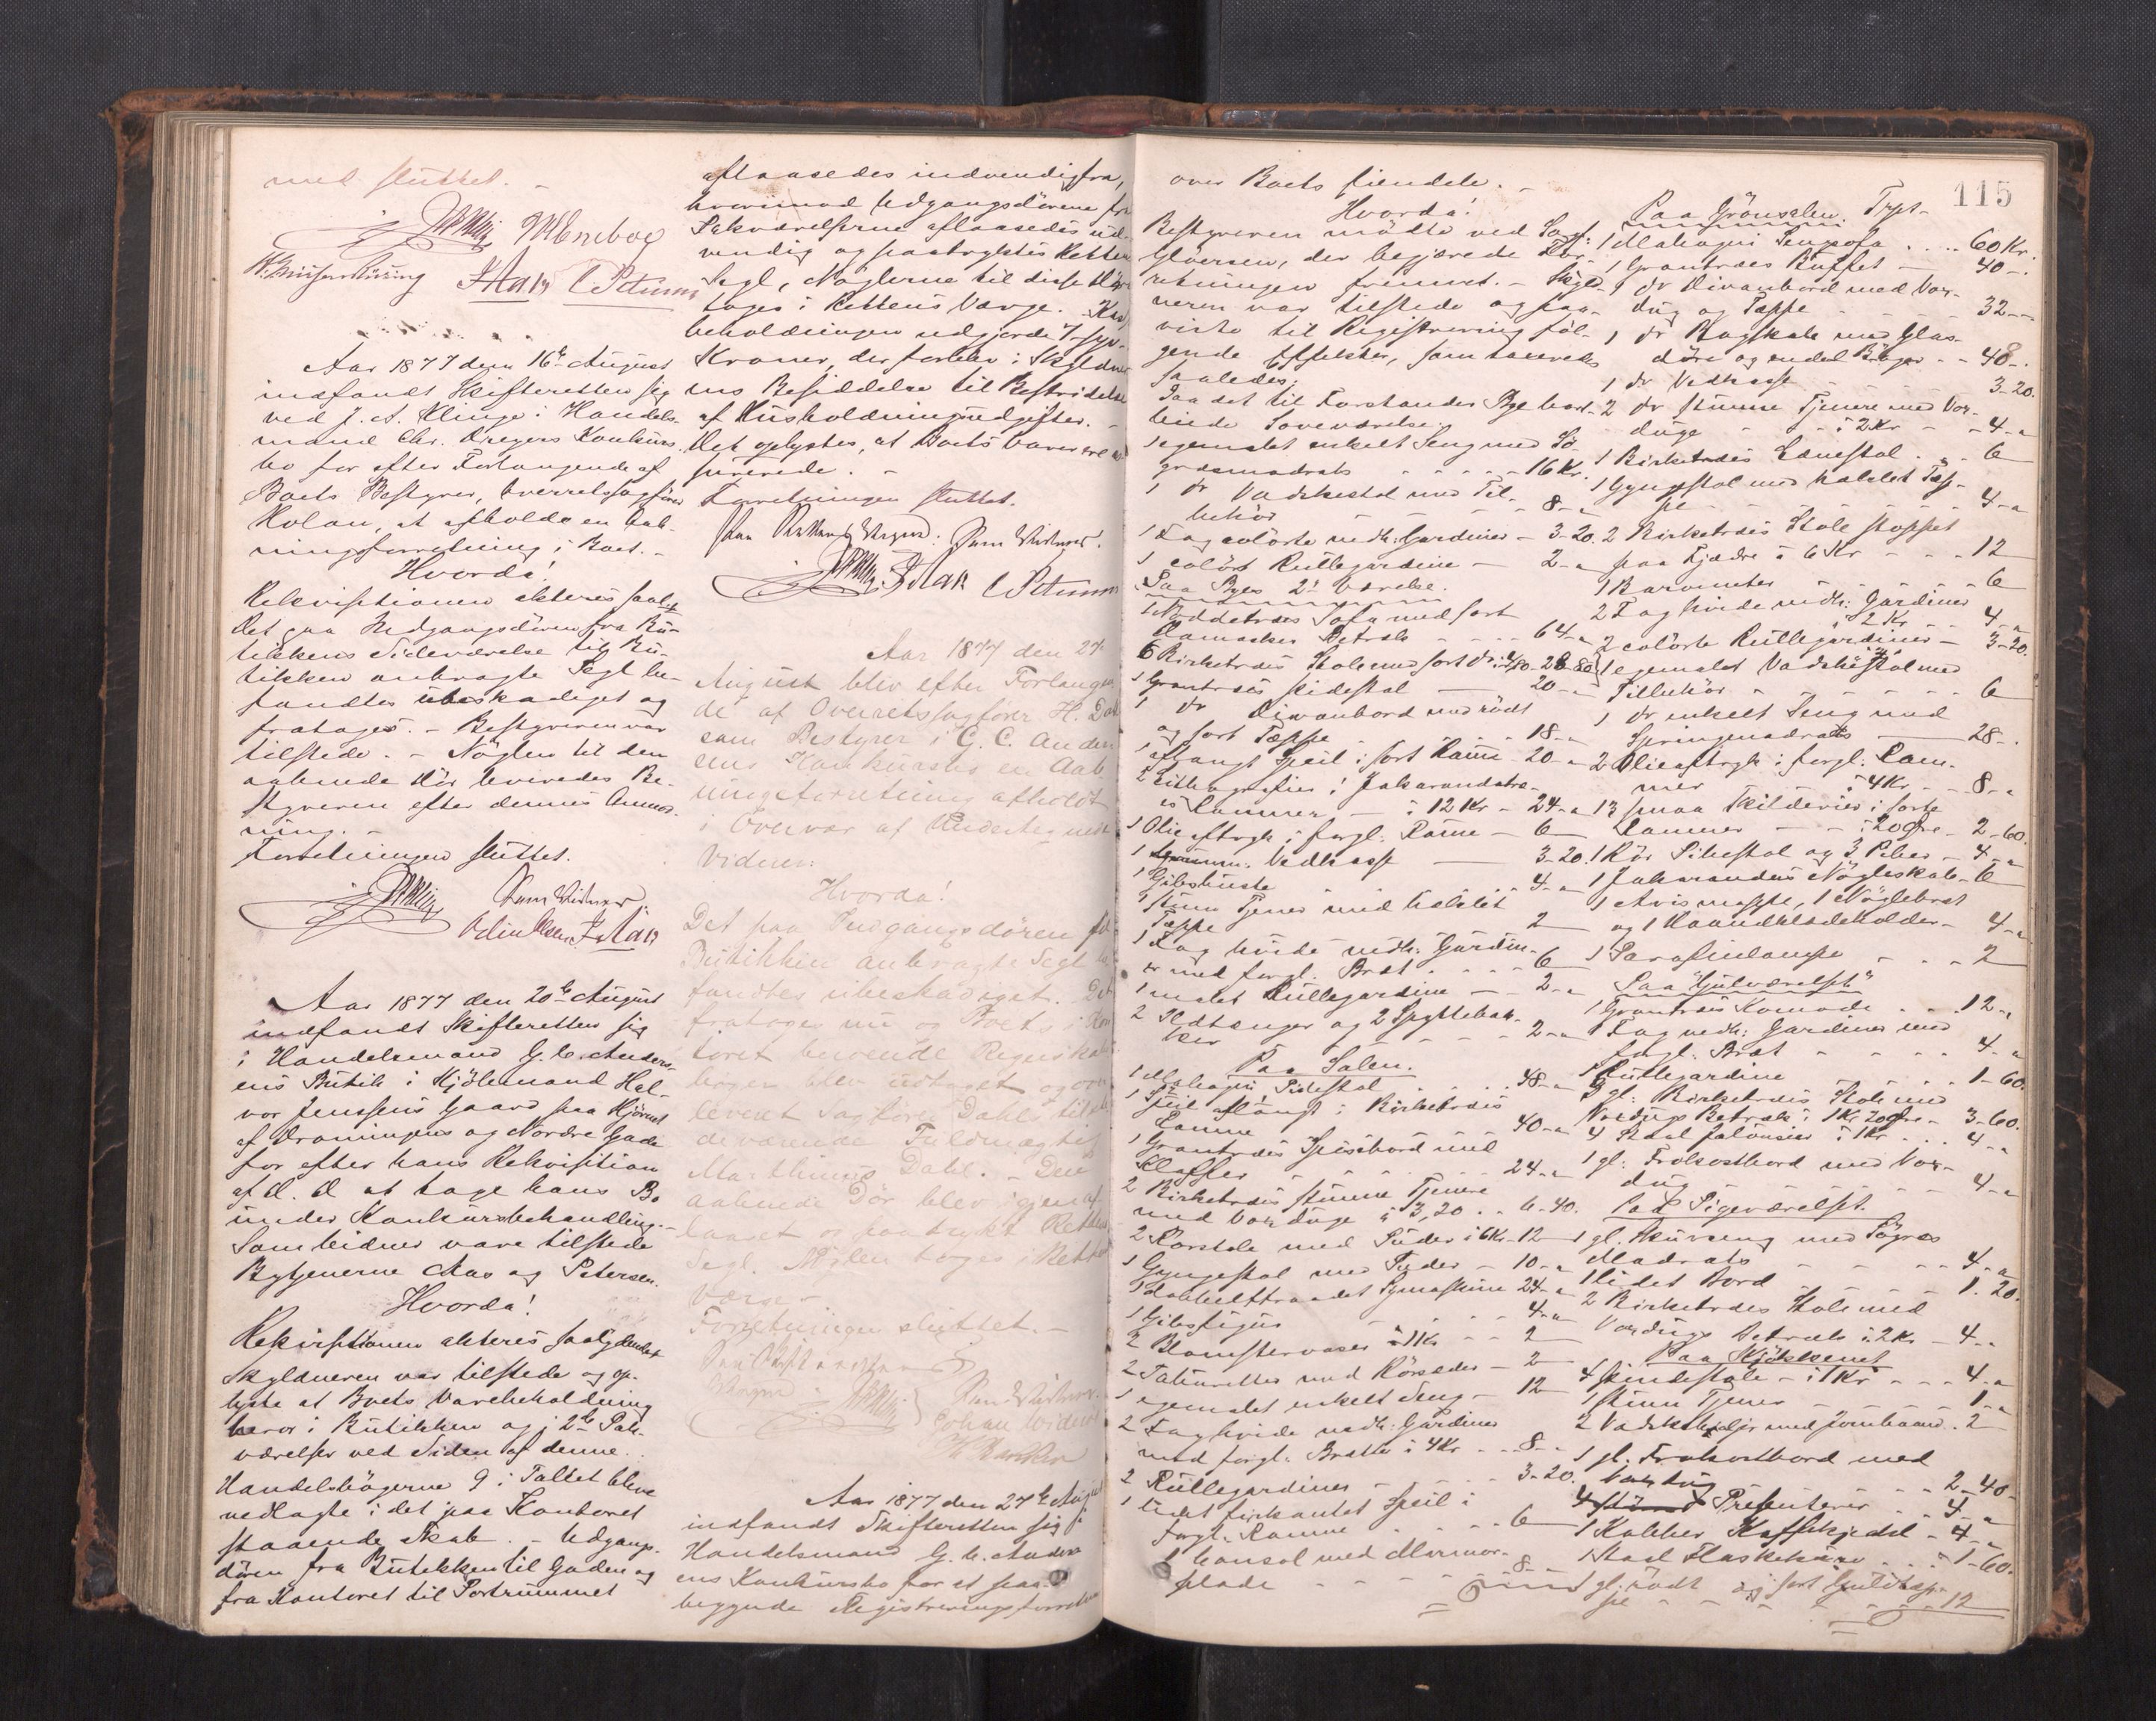 med sluttet. –
C Petersen
Aar 1877 den 16de August
indfandt Skifteretten sig
ved J. A. Klinge i Handels-
mand Chr. Dregers Konkurs-
bo for efter Forlangende af
Boets Bestyrer, Overretssagfører
at afholde en Aab-
ningsforretning i Boet. –
Hvorda!
Rekvisitionen akteres saal.
Det paa Indgangsdøren fra Bu-
tikkens Sideværelse til Bu-
tikken anbragte Segl be-
fandtes ubeskadiget og
fratoges. – Bestyreren var
tilstede. – Nøglen til den
aabnede Dør leveredes Be-
styreren efter dennes Anmod-
ning. –
Forretningen sluttet.
Som Vidner.
Aar 1877 den 20de August
indfandt Skifteretten sig
i Handelsmand G. C. Anders-
ens Butik i Kjøbmand Hal-
vor Jenssens Gaard paa Hjørnet
af Dronningens og Nordre Gade
for efter hans Rekvisition
af D. D. at tage hans Bo
under Konkursbehandling. –
Som Vidner vare tilstede
Bytjenerne Aas og Petersen.
Hvorda!
Rekvisitionen akteres saalydende
Skyldneren var tilstede og op-
lyste at Boets Varebeholdning
beror i Butikken og i 2de Pak-
værelser ved Siden af denne.
Handelsbøgerne 9 i Tallet bleve
nedlagte i det paa Kontoret
staaende Skab. – Udgangs-
døren fra Butikken til Gaden og
fra Kontoret til Portrummet
aflaasedes indvendigfra,
hvorimod Udgangsdørene fra
Pakværelserne aflaasedes ud-
vendig og paatryktes Rettens
Segl, Nøglerne til disse Døre
toges i Rettens Værge. Kas-
beholdningen udgjorde 7 syv
Kroner, der forblev i Skyldner-
ens Besiddelse til Bestridelse
af Husholdningsudgifter. –
Det oplystes, at Boets Varer ere as-
surerede. –
Forretningen sluttet.
Som Vidner.
C Petersen
Aar 1877 den 27
August blev efter Forlangen-
de af Overretssagfører H. Dahl
som Bestyrer i G. C. Ander-
sens Konkursbo en Aab-
ningsforretning afholdt
i Overvær af Undertegnede
Vidner:
Hvorda!
Det paa Indgangsdøren til
Butikken anbragte Segl be-
fandtes ubeskadiget. Det
fratoges nu og Boets i Kon-
toret beroende Regnskabs-
bøger blev udtaget og over-
leveret Sagfører Dahls tilste-
deværende Fuldmægtig
Marthinus Dahl. – Den
aabnede Dør blev igjen af-
laaset og paatrykt Rettens
Segl. Nøglen toges i Rettens
Værge –
Forretningen sluttet. –
Som Vidner
Aar 1877 den 27de August
indfandt Skifteretten sig i
Handelsmand G. C. Anders-
ens Konkursbo for at paa-
begynde Registreringsforretn
115
over Boets Eiendele. –
Hvorda!
Bestyreren mødte ved Sagf.
Gløersen, der begjærede For-
retningen fremmet. – Skyld-
neren var tilstede og paa-
viste til Registrering føl-
gende Effekter, som taxeredes
saaledes:
Paa det til Forstander Bye bort-
leiede Soveværelse.
1 egemalet enkelt Seng med Sø-
græsmadrats – – – 16 Kr.
1 do Vadskestol med Til-
behør – – – 8 –
1 Fag colørte nedh: Gardiner – 3-20.
1 colørt Rullegardine – 2 –
Paa Byes 2det Værelse.
1 Nøddetræes Sofa med sort
Damaskes Betræk – – 64 –
6 Birketræes Stole med sort do 4/80 – 28-80
1 Grantræes Sidestol – 20 –
1 do Divanbord med rødt
og sort Tæppe – – 18 –
1 aflangt Speil i sort Ramme 20 –
2 Lithografier i Jakarandatræ-
es Rammer – à 12 Kr – 24 –
1 Olieaftryk i forgl: Ramme – 6
1 Vedkasse – 3-20.
1 Gibsbuste – 4 –
1 stum Tjener med
Tæppe – 2
1 Fag hvide nedh: Gardin-
er med forgl. Bræt – – 6
1 malet Rullegardine – 2 –
2 Ildtænger og 2 Spyttebak-
ker – – – 2 –
Paa Salen.
1 Mahogni Sidestol – 48 –
1 Speil aflangt i Birketræes
Ramme – 40 –
1 Grantræes Spisebord med
Klaffer – 24 –
2 Birketræes stumme Tjenere
med Voxduge à 3,20 – 6-40.
2 Rørstole med Puder à 6 Kr – 12
1 Gyngestol med Puder – 10 –
1 dobbelttraadet Symaskine 24 –
1 Gibsfigur – 4 –
2 Blomstervaser à 1 Kr – 2
2 Taburetter med Rørsæder – 2
1 egemalet enkelt Seng – 12
2 Fag hvide nedh: Gardiner
med forgl. Brætte à 4 Kr – 8 –
2 Rullegardiner – 3-20.
1 lidet firkantet Speil i
forgl: Ramme – 6
1 Consol med Marmor-
plade – – 8 –
Paa Grønsalen.
1 Mahogni Sengsofa – 60 Kr.
1 Grantræes Buffet – 40 –.
1 do Divanbord med Vox-
dug og Tæppe – 32 –
1 do Bogskab med Glas-
døre og endel Bøger – 40 –.
1 do Vedkasse – 3-20.
2 do stumme Tjenere med Vox-
duge – à 2 Kr – 4 –
1 Birketræes Lænestol – 6
1 Gyngestol med Tæp-
pe – 4 –
2 Birketræes Stole stoppet
paa Fjædre à 6 Kr – 12
1 Barometer – 6
2 Fag hvide nedh: Gardiner
à 2 Kr – 4 –
2 colørte Rullegardiner – 3-20.
1 egemalet Vadskestol med
Tilbehør – 6
1 do enkelt Seng med
Springmadrats – 28 –.
2 Olieaftryk i forgl: Ram-
mer – à 4 Kr – 8 –
13 smaa Skilderier i sorte
Rammer – à 20 Øre – 2-60.
1 Rør Pibestol og 3 Piber – 4 –
1 Jakarandes Nøgleskab – 6
1 Avismappe, 1 Nøglebræt
og 1 Haandklædeholder – 4 –
1 Parafinlampe – 2
Paa "Gulværelset"
1 Grantræes Komode – 12 –
1 Fag nedh: Gardiner med
forgl. Bræt – 4 –
1 Rullegardine – 1-60.
3 gl: Birketræes Stole med
Voxdugs Betræk à 1 Kr 20 Øre – 3-60.
4 Staal Jalousier à 1 Kr – 4 –
1 gl: Frokostbord med Vox-
dug – 4 –
Paa Pigeværelset.
1 gl. Skuvseng med Søgræs
Madrats – 4 –
1 lidet Bord – 1.20.
2 Birketræes Stole med
Voxdugs Betræk à 2 Kr – 4 –
Paa Kjøkkenet
4 Pindestole – à 1 Kr – 4 –
1 stum Tjener – 1 –
2 med Jernbaand . 2
1 gl. Frokostbord med
Voxdug – 2-40 –
4 Præsenterer – 4 –
1 Kobber Kaffekjedel – 4 –
1 Staal Flaskekurv – 1-60.
1 gl: rødt og sort Gulvtæp-
pe – 12